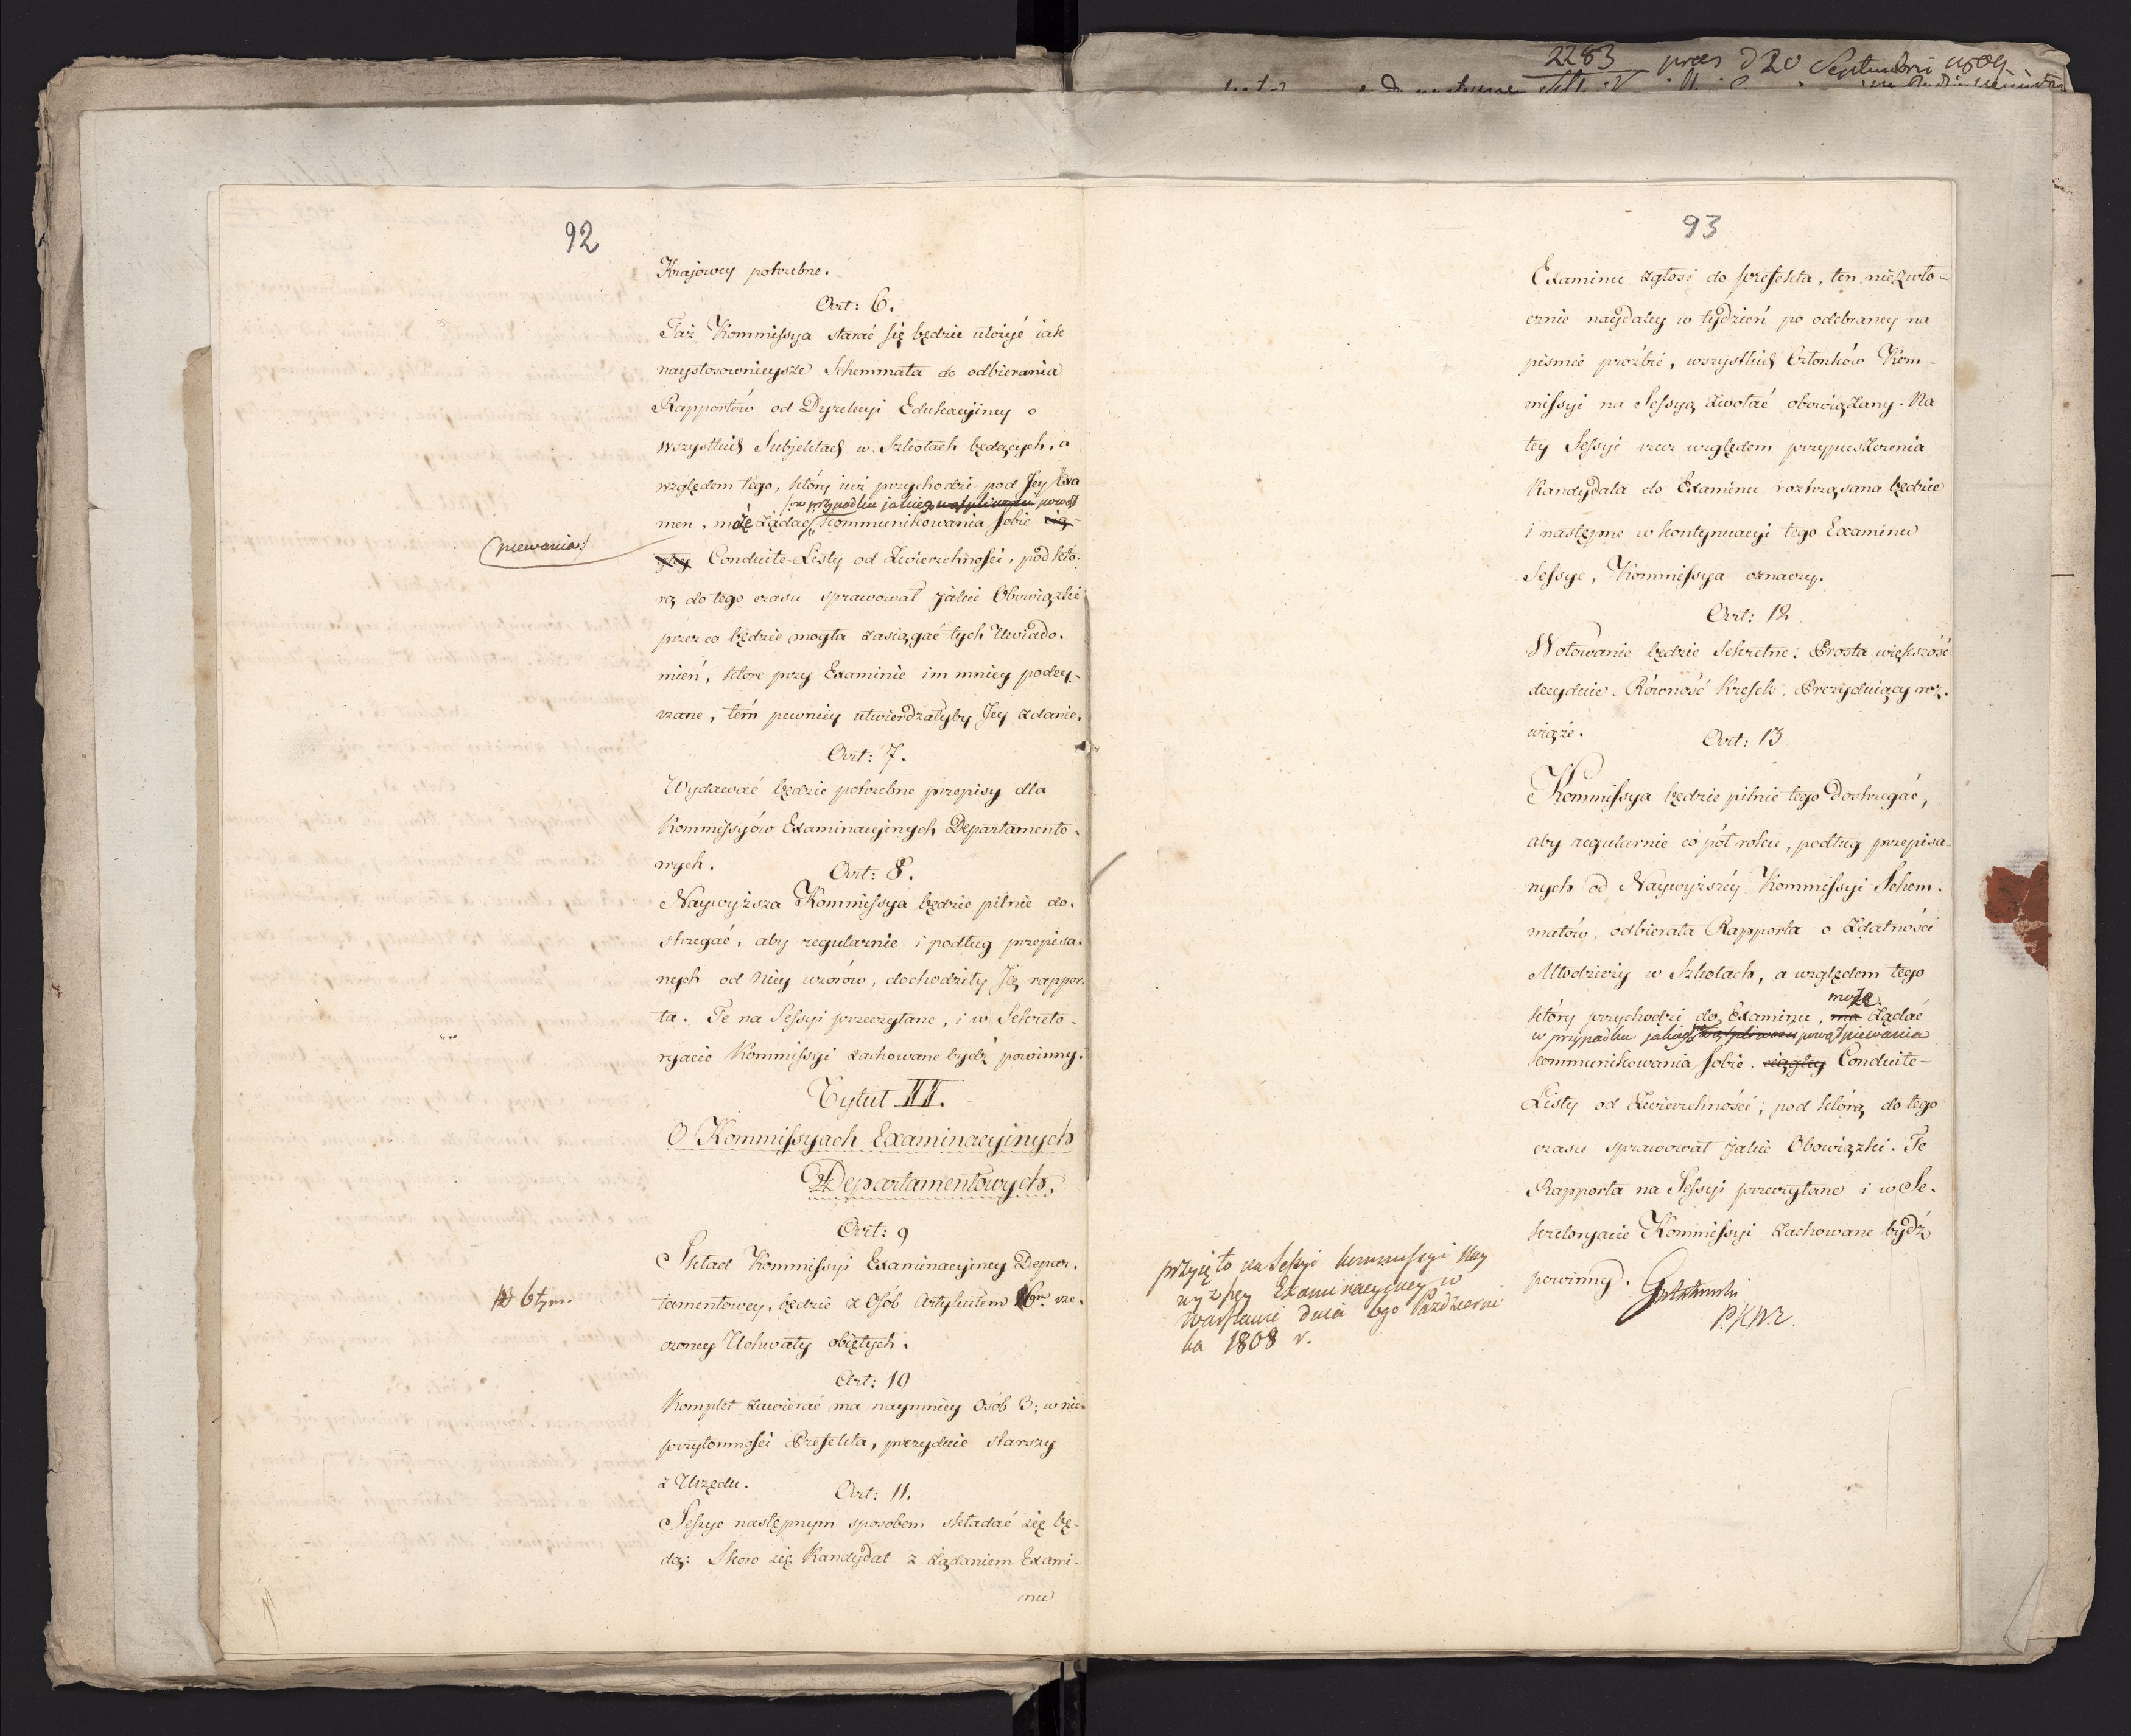 2283 pres d 20 Septembri 1809
92
Krajowey potrzebne.
Art: 6.
Taż Kommissya starać się będzie ułożyć iak
naystosownieysze Schemmata do odbierania
Rapportów od Dyrekcyi Edukacyiney o
wszystkich Subjektach w Szkołach będących, a
względem tego, który iuż przychodzi pod Jey Exa
/:w przypadku jakiego wątpliwości powąt
men, może żądać kommunikowania sobie cią-
piewania:/
głey Conduite-Listy od Zwierzchności, pod któ-
rą do tego czasu sprawował jakie Obowiązki
przez co będzie mogła zasiągać tych Uwiado-
mień, które przy Examinie im mniey podey-
rzane, tém pewniey utwierdzałyby Jey zdanie.
Art: 7.
Wydawać będzie potrzebne przepisy dla
Kommissyów Examinacyinych Departamento-
wych.
Art: 8.
Naywyższa Kommissya będzie pilnie do-
strzegać, aby regularnie i podług przepisa-
nych od Niey wzorów, dochodziły Ją rappor-
ta. Te na Sessyi przeczytane, i w Sekreto-
ryacie Kommissyi zachowane bydź powinny.
Tytuł II.
O Kommissyach Examinacyinych
Departamentowych.
Art: 9
Skład Kommissyi Examinacyiney Depar-
6tym.
tamentowey, będzie z Osób Artykułem 6m rze-
czoney Uchwały obiętych.
Art: 10
Komplet zawierać ma naymniey Osób 3; w nie-
przytomności Prefekta, prezyduie starszy
z Urzędu.
Art: 11.
Sessye następnym sposobem składać się bę-
dą: Skoro się Kandydat z żądaniem Exami-
nu
93
Examinu zgłosi do Prefekta, ten niezwło-
cznie naydaley w tydzień po odebraney na
pismie prozbie, wszystkich Członków Kom-
missyi na Sessyą zwołać obowiązany. Na
tey Sessyi rzecz względem przypuszczenia
Kandydata do Examinu roztrząsana będzie
i następne w kontynuacyi tego Examinu
Sessye, Kommissya oznaczy.
Art: 12
Wotowanie będzie sekretne: Prosta większość
decyduie. Równość kresek, Prezyduiący roz-
wiąże.
Art: 13
Kommissya będzie pilnie tego dostrzegać,
aby regularnie co pół roku, podług przepisa-
nych od Naywyższéy Kommissyi Schem-
matów, odbierała Rapporta o Zdatności
Młodzieży w Szkołach, a względem tego
może
który przychodzi do Examinu, ma żądać
w przypadku jakiego wątpliwości powątpiewania
kommunikowania sobie ciągłey Conduite-
Listy od Zwierzchności, pod którą do tego
czasu sprawował jakie Obowiązki. Te
Rapporta na Sessyi przeczytane i w Se-
kretoryacie Kommissyi zachowane bydź
powinny.
przyięto na Sessyi kommissyi Nay
wyzszey Examinacyiney w
Warszawie dnia 6go Październi
ka 1808 r.